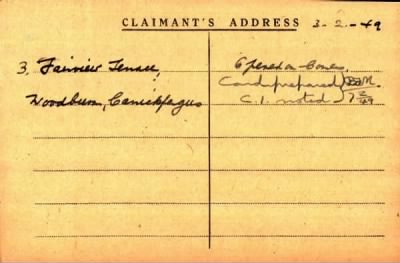 CLAIMANT'S ADDRESS 3-2-49
3, Fairview Terrace,
Woodburn, Carrickfergus
Card prepared
C.I. noted
7 2/49